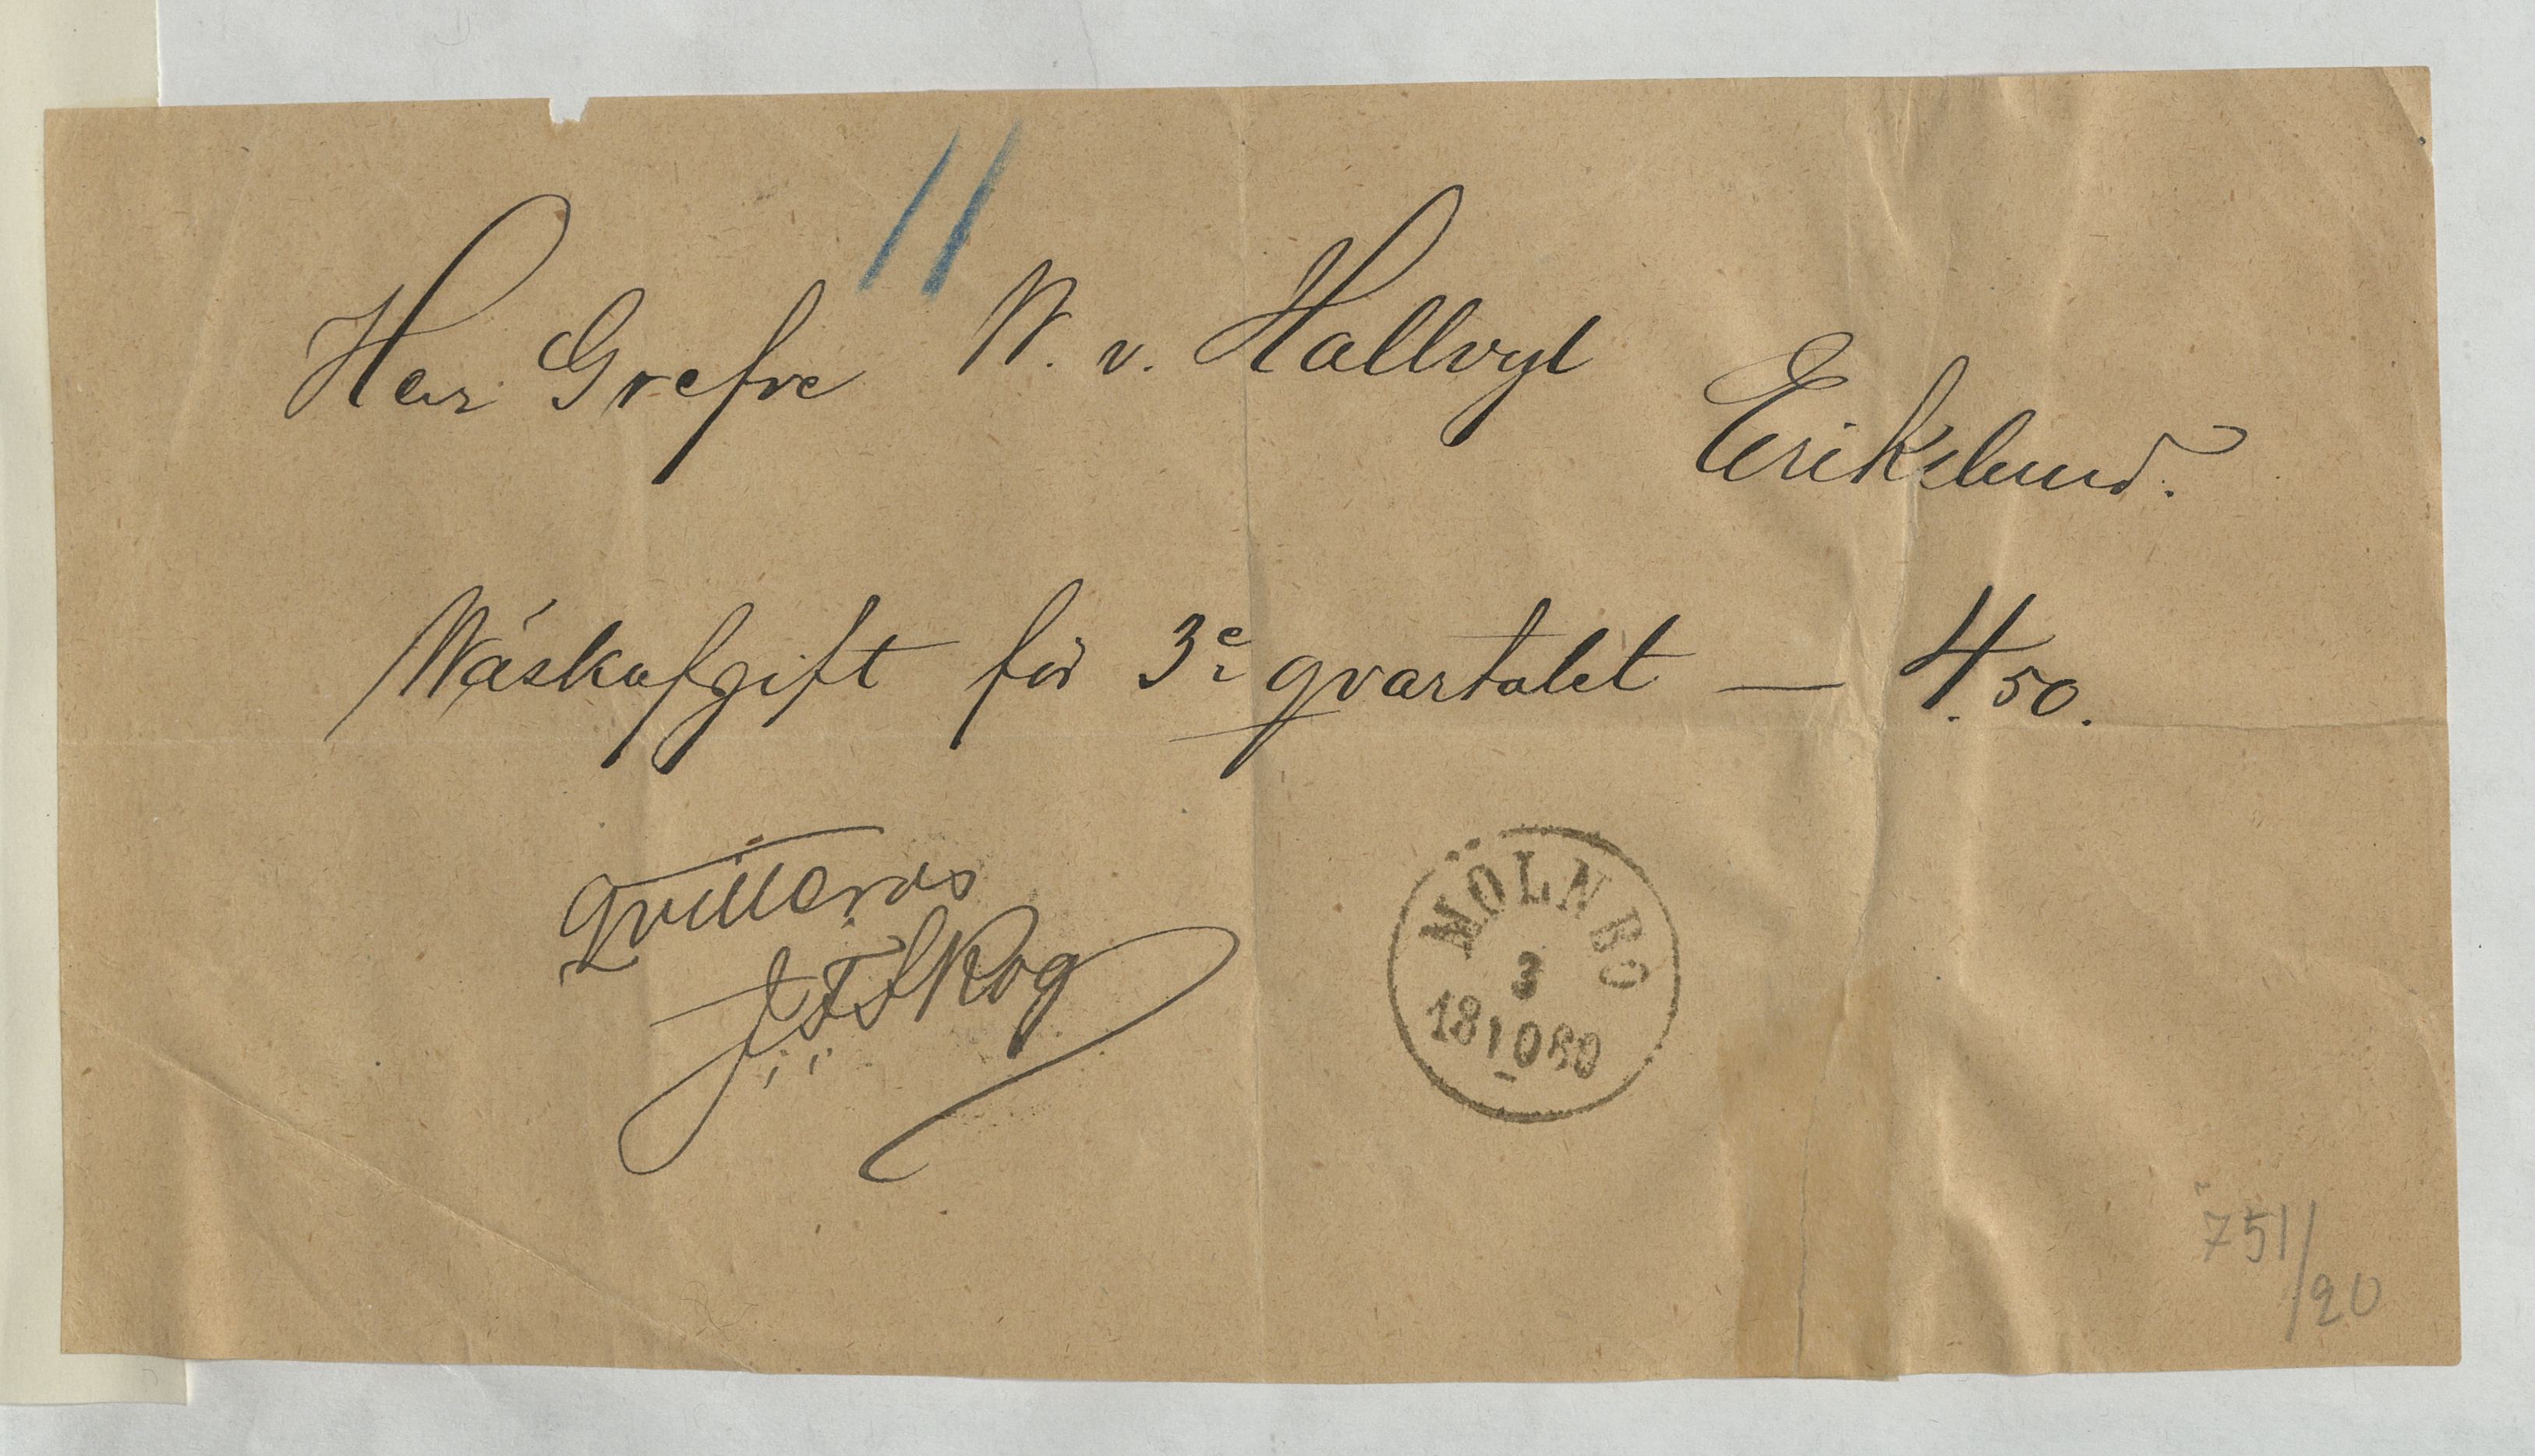 11
Herr Grefve W. v. Hallvyl
Erikslund.
Wäskafgift för 3e qvartalet — 4.50.
Qvitteras
J F Skog
MOLNBO
3
18 10 80
751/20